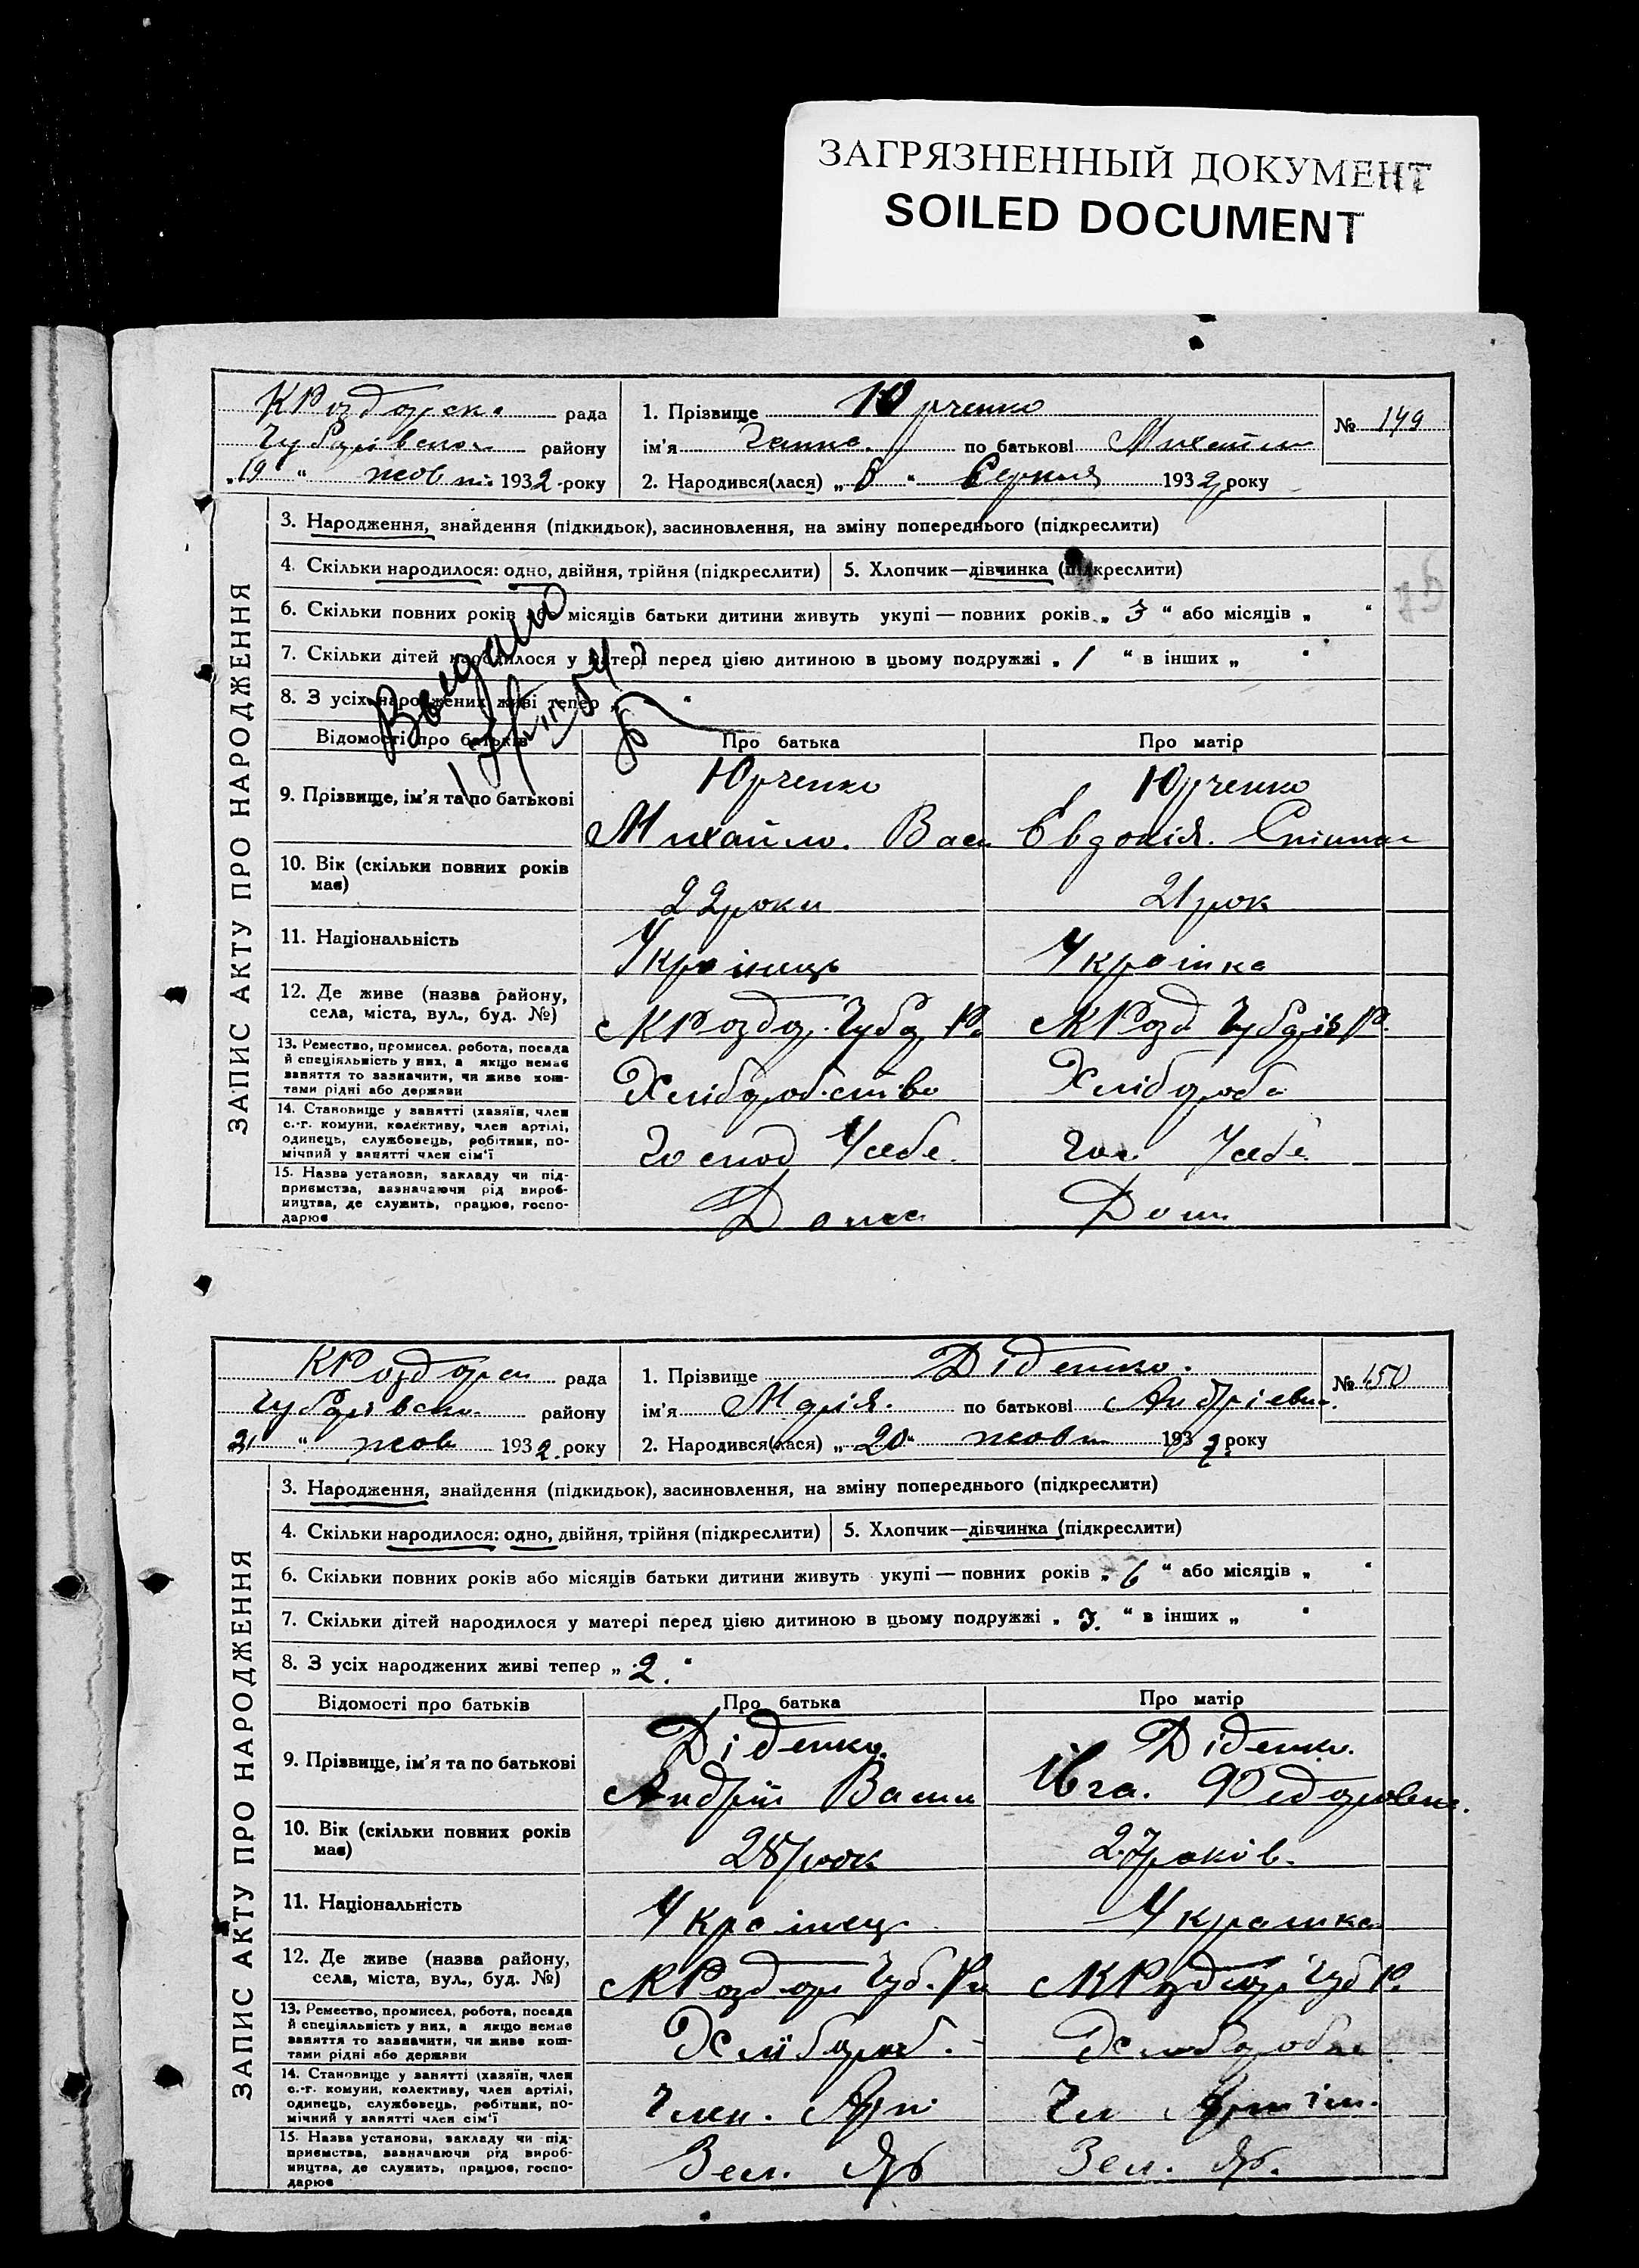 ЗАГРЯЗНЕННЫЙ ДОКУМЕНТ
SOILED DOCUMENT
КРоздорск. рада
Чубарівськ району
„19“ жовтн 1932 року
1. Прізвище Юрченко
ім'я Ганна. по батькові Михайл
2. Народився(лася) „8“ Серпня 1932 року
№ 149
ЗАПИС АКТУ ПРО НАРОДЖЕННЯ
3. Народження, знайдення (підкидьок), засиновлення, на зміну попереднього (підкреслити)
4. Скільки народилося: одно, двійня, трійня (підкреслити)
5. Хлопчик—дівчинка (підкреслити)
6. Скільки повних років або місяців батьки дитини живуть укупі — повних років „3“ або місяців „ “
7. Скільки дітей народилося у матері перед цією дитиною в цьому подружжі „1“ в інших „ “
8. З усіх народжених живі тепер „ “
Відомості про батьків
Про батька
Про матір
9. Прізвище, ім'я та по батькові
Юрченко
Михайло. Вас
Юрченко
Євдокія.
10. Вік (скільки повних років має)
22 роки
21 рок
11. Національність
Українець
Українка
12. Де живе (назва району, села, міста, вул., буд. №)
КРоздор. Чубар Р.
КРозд Чубарів Р.
13. Ремество, промисел, робота, посада
й спеціяльність у них, а якщо немає
заняття то зазначити, чи живе кош-
тами рідні або держави
Хліборобство
Хлібороб
14. Становище у занятті (хазяїн, член
с.-г. комуни, колективу, член артілі,
одинець, службовець, робітник, по-
мічний у занятті член сім'ї
Господ У себе.
Гос У себе.
15. Назва установи, закладу чи під-
приємства, зазначаючи рід вироб-
ництва, де служить, працює, госпо-
дарює
Дома
Дом
КРоздорск рада
Чубарівськ району
21 “ жов 1932 року
1. Прізвище Діденко.
ім'я Марія. по батькові Андрієвна.
2. Народився(лася) „20“ жовтн 1932 року
№ 150
ЗАПИС АКТУ ПРО НАРОДЖЕННЯ
3. Народження, знайдення (підкидьок), засиновлення, на зміну попереднього (підкреслити)
4. Скільки народилося: одно, двійня, трійня (підкреслити)
5. Хлопчик—дівчинка (підкреслити)
6. Скільки повних років або місяців батьки дитини живуть укупі — повних років „6“ або місяців „ “
7. Скільки дітей народилося у матері перед цією дитиною в цьому подружжі „3.“ в інших „ “
8. З усіх народжених живі тепер „2.“
Відомості про батьків
Про батька
Про матір
9. Прізвище, ім'я та по батькові
Діденко
Андрій Васил
Діденко.
Ївга. Федоровна.
10. Вік (скільки повних років має)
28 рок
27 років.
11. Національність
Українец
Украинка
12. Де живе (назва району, села, міста, вул., буд. №)
КРоздор Чуб. Рн
КРоздор Чуб Р.
13. Ремество, промисел, робота, посада
й спеціяльність у них, а якщо немає
заняття то зазначити, чи живе кош-
тами рідні або держави
Хлібороб.
Хлібороб
14. Становище у занятті (хазяїн, член
с.-г. комуни, колективу, член артілі,
одинець, службовець, робітник, по-
мічний у занятті член сім'ї
Член. Арт
Чл Артіл.
15. Назва установи, закладу чи під-
приємства, зазначаючи рід вироб-
ництва, де служить, працює, госпо-
дарює
Зел. Яр
Зел. Яр.